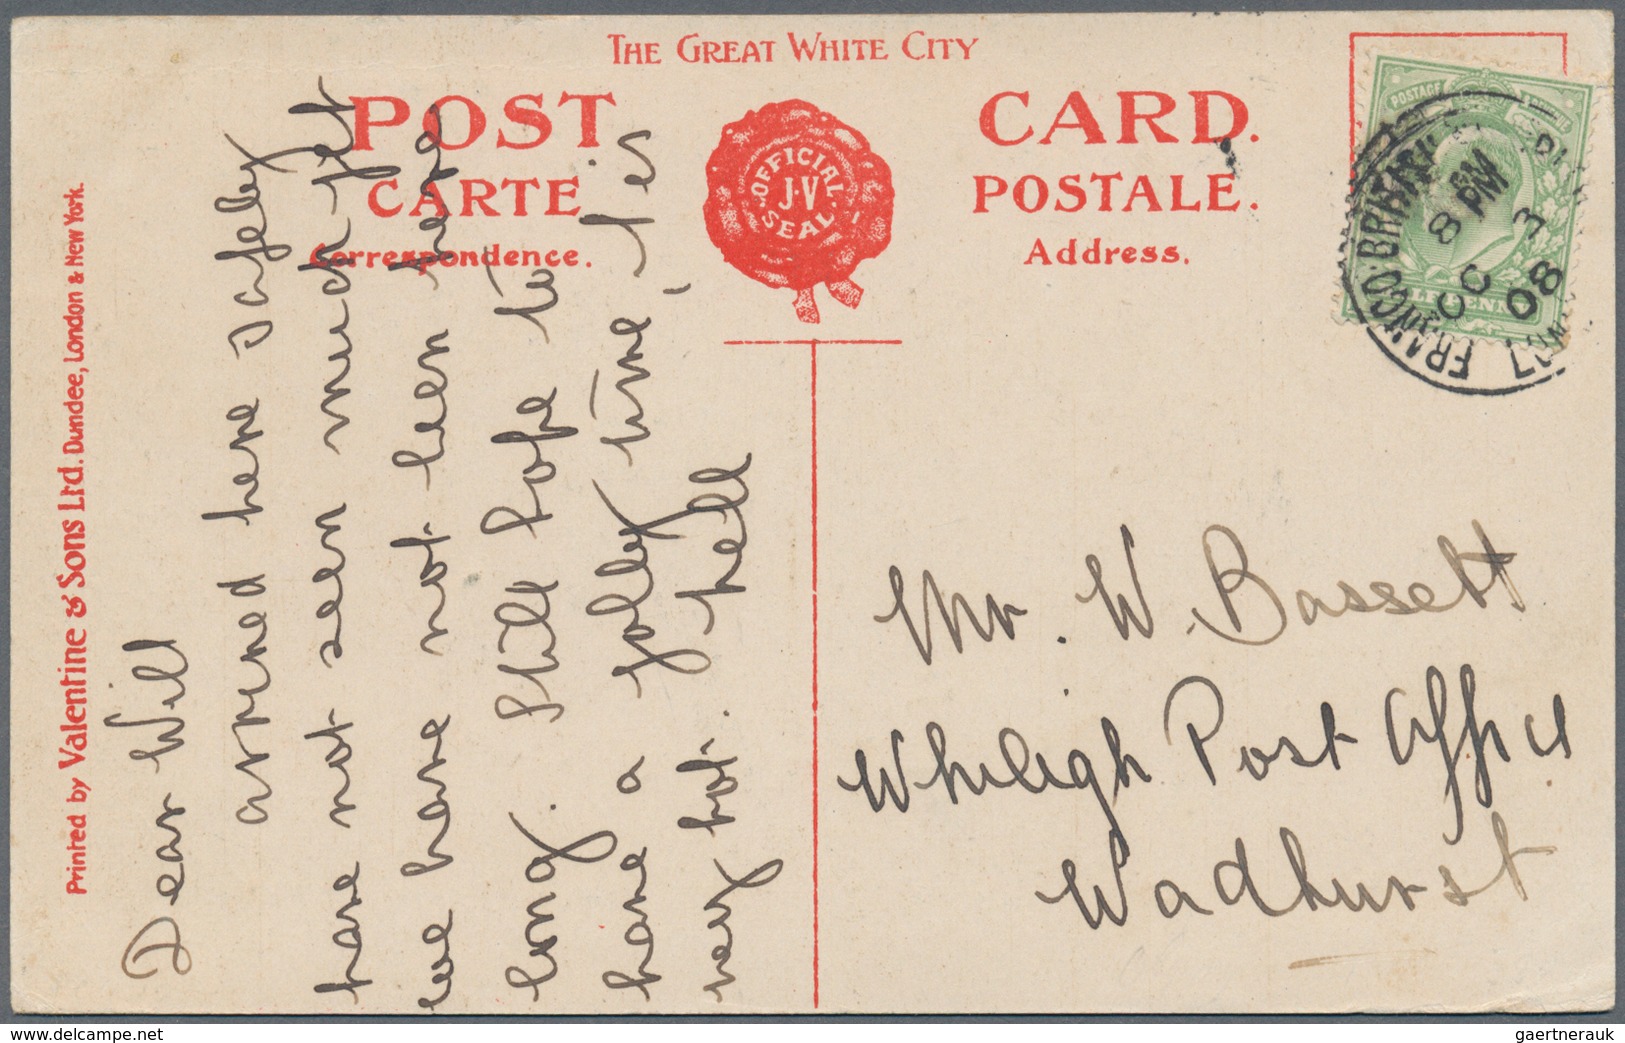 THE GREAT WHITE CITY
POST CARD.
CARTE POSTALE.
Correspondence. Address.
OFFICIAL
J·V
SEAL
Printed by Valentine & Sons Ltd. Dundee, London & New York.
Dear Will
arrived here safely
have not seen much yet
we have not been here
long. Still hope to
have a jolly time, 'tis
very hot. Nell
Mr. W. Bassett
Whiligh Post Office
Wadhurst
POSTAGE
FRANCO·BRITISH
8 PM
OC 3
08
delcampe.net
gaertnerauk